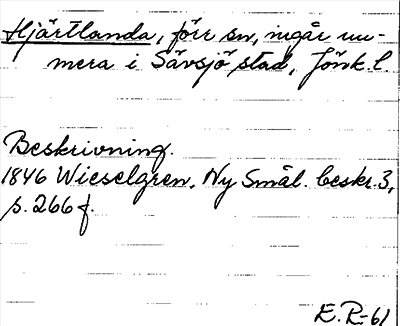 Hjärtlanda, förr sn, ingår nu-
mera i Sävsjö stad, Jönk. l
Beskrivning.
1846 Wieselgren, Ny Smål. beskr. 3,
s. 266 f.
E.R-61